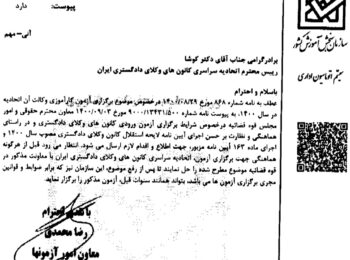 پیوست: دارد
آنی-مهم
سازمان سنجش آموزش کشور
سیستم اتوماسیون اداری
برادر گرامی جناب آقای دکتر کوشا
رییس محترم اتحادیه سراسری کانون های وکلای دادگستری ایران
باسلام و احترام
عطف به نامه شماره ۸۶۸ مورخ درخصوص موضوع برگزاری آزمون کارآموزی وکالت آن اتحادیه
در سال ۱۴۰۰، به پیوست نامه شماره ۹۰۰۰/۱۳۴۳۱/۵۰۰ مورخ ۱۴۰۰/۰۹/۰۳ معاون محترم حقوقی و امور
مجلس قوه قضائیه درخصوص شرایط برگزاری آزمون ورودی کانون های وکلای دادگستری و در راستای
هماهنگی و نظارت بر حسن اجرای آیین نامه لایحه استقلال کانون وکلای دادگستری مصوب سال ۱۴۰۰ و
اجرای ماده ۱۶۳ آیین نامه مزبور، جهت اطلاع و اقدام لازم ارسال می شود. انتظار می رود قبل از هرگونه
هماهنگی جهت برگزاری آزمون، اتحادیه سراسری کانون های وکلای دادگستری ایران با معاونت مذکور در
قوه قضائیه موضوع مطروح شده را حل نمایند تا پس از رفع موضوع، این سازمان نیز که برابر ضوابط و قوانین
مجری برگزاری آزمون ها می باشد، بتواند همانند سنوات قبل، آزمون مذکور را برگزار نماید.
احترام
رضا محمدی
معاون امور آزمونها